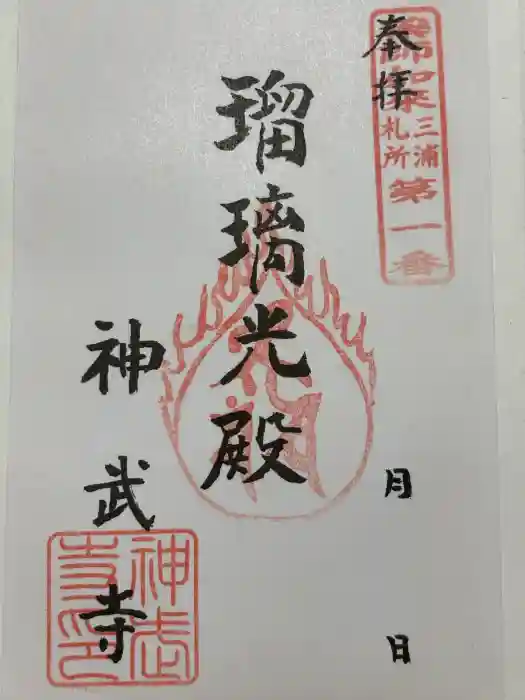 奉拝
薬師如来
三浦
札所
第一番
瑠璃光殿
月
日
神武寺
神武
寺印